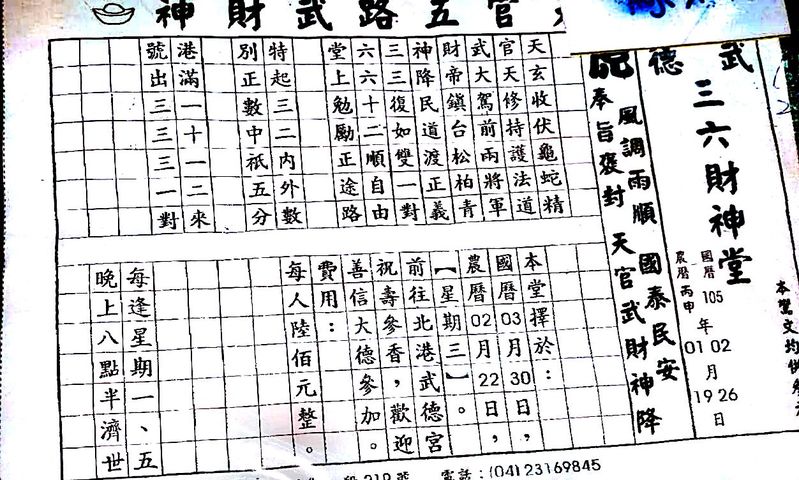 官五路武財神
本鸞文均供參
武德
三六財神堂
國曆105年02月26日
農曆丙申01 19
風調雨順 國泰民安
奉旨褒封 天官武財神降
天玄收伏龜蛇精
官天修持護法道
武大駕前兩將軍
財帝鎮台松柏青
神降民道渡正義
三三復如雙一對
六六十二順自由
堂上勉勵正途路
特起三二內外數
別正數中祇五分
港滿一十一二來
號出三三三一對
本堂擇於：
國曆03月30日，
農曆02月22日。
【星期三】
前往北港武德宮
祝壽參香，歡迎
善信大德參加。
費用：
每人陸佰元整。
每逢星期一、五
晚上八點半濟世
段219號 電話：(04)23169845